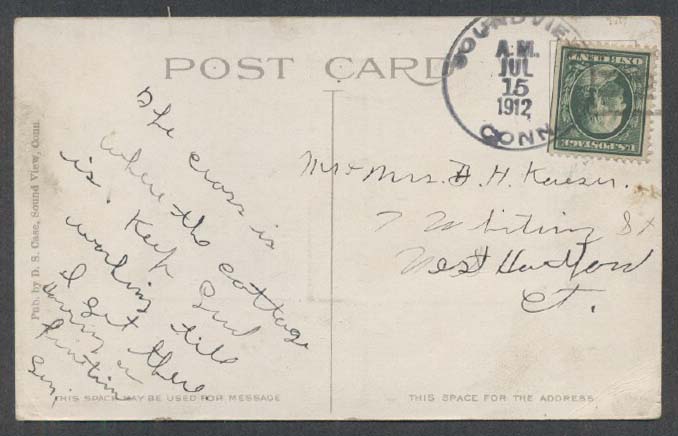 POST CARD
SOUNDVIEW
A.M.
JUL
15
1912
CONN
ONE CENT
U.S. POSTAGE
The cross is
where the cottage
is. Keep Bud
working till
I get there
Mr & Mrs. H. H. Kaeser.
7 Whiting St
West Hartford
Ct.
Pub. by D. S. Case, Sound View, Conn.
THIS SPACE MAY BE USED FOR MESSAGE
THIS SPACE FOR THE ADDRESS